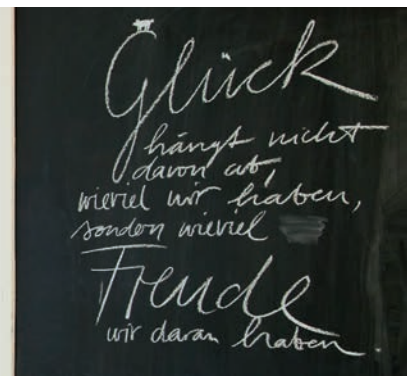 Glück
hängt nicht
davon ab,
wieviel wir haben,
sondern wieviel
Freude
wir daran haben.